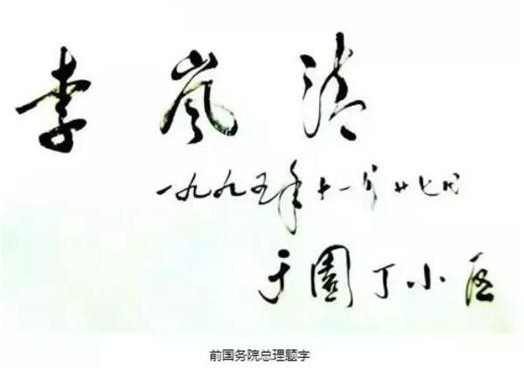 李岚清
一九九五年十一月廿七日
于園丁小区
前国务院总理题字